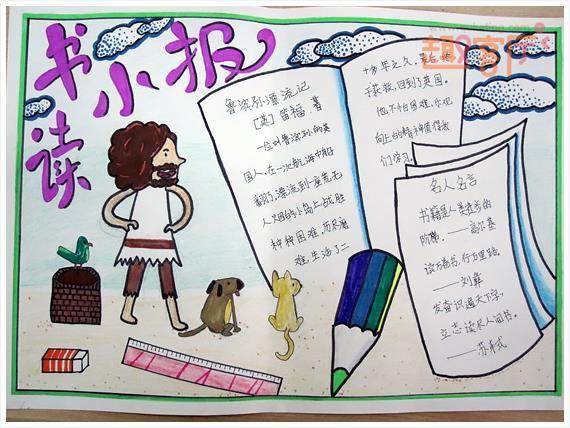 读书小报
鲁滨孙漂流记
[英] 笛福·著
一位叫鲁滨孙的英
国人，在一次航海中船
翻了，漂流到一座荒无
人烟的小岛上，战胜
种种困难，历尽磨
难，生活了二
十多年之久，最后
于获救，回到了英国。
他不怕困难，乐观
向上的精神值得我
们学习。
名人名言
书籍是人类进步的
阶梯。——高尔基
读万卷书，行万里路。
——刘彝
发奋识遍天下字，
立志读尽人间书。
——苏轼